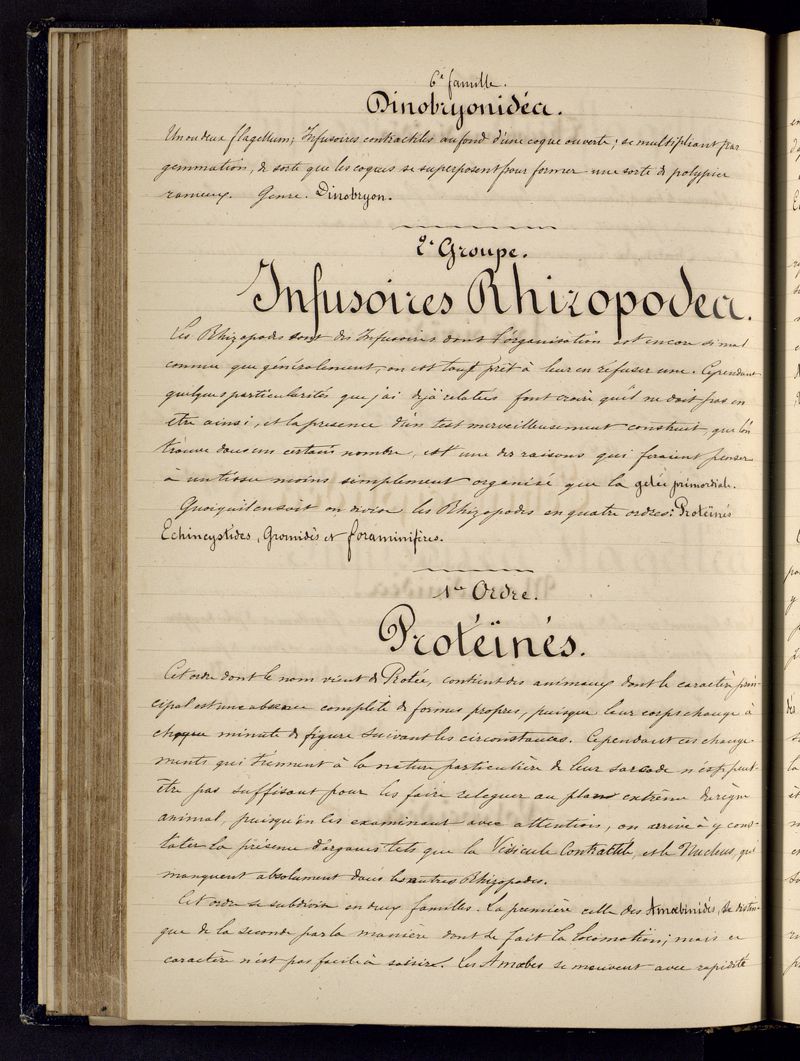 6e famille.
Dinobryonidéa.
Un ou deux flagellum; Infusoires contractiles au fond d'une coque ouverte; se multipliant par
gemmation, de sorte que les coques se superposent pour former une sorte de polypier
rameux. Genre. Dinobryon.
2e Groupe.
Infusoires Rhizopodea.
Les Rhizopodes sont des Infusoires dont l'organisation est encore si mal
connue que généralement, on est tout prêt à leur en refuser une. Cependant
quelques particularités que j'ai déjà relatées font croire qu'il ne doit pas en
être ainsi, et la présence d'un test merveilleusement construit, que l'on
trouve dans un certain nombre, est une des raisons qui feraient penser
à un tissu moins simplement organisé que la gelée primordiale.
Quoiqu'il en soit on divise les Rhizopodes en quatre ordres: Protéïnés
Echincystides, Gromidés et foraminifères.
1er Ordre.
Protéïnés.
Cet ordre dont le nom vient de Protée, contient des animaux dont le caractère prin-
cipal est une absence complète de formes propres, puisque leur corps change à
chaque minute de figure suivant les circonstances. Cependant ces change-
ments qui tiennent à la nature particulière de leur sarcode n'est peut-
être pas suffisant pour les faire releguer au plan extrême du règne
animal, puisqu'en les examinant avec attention, on arrive à y cons-
tater la présence d'organes tels que la Vésicule Contractile, et le Nucleus, qui
manquent absolument dans les autres Rhizopodes.
Cet ordre se subdivise en deux familles. La première celle des Amœbinidés, se distin-
gue de la seconde par la manière dont se fait la locomotion; mais ce
caractère n'est pas facile à saisir. Les Amœbes se meuvent avec rapidité